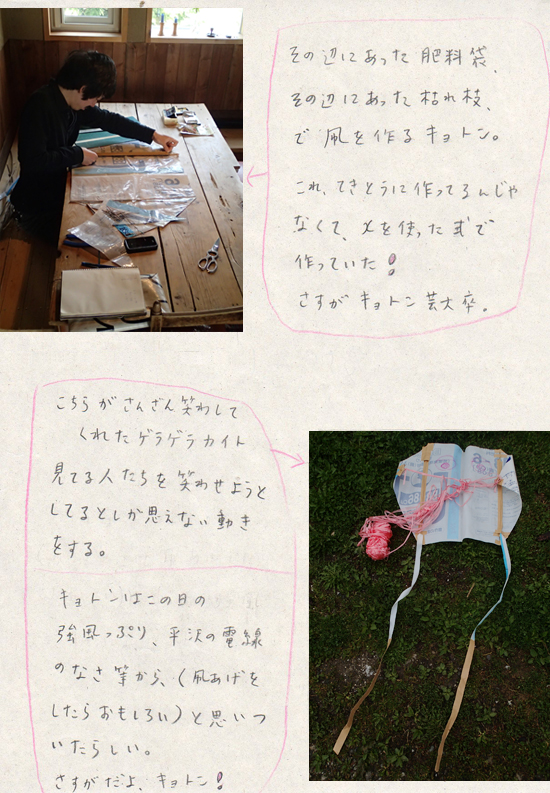 その辺にあった肥料袋、
その辺にあった枯れ枝、
で凧を作るキョトン。
これ、てきとうに作ってるんじゃ
なくて、xを使った式で
作っていた!
さすがキョトン芸大卒。
こちらがさんざん笑わして
くれたゲラゲラカイト
見てる人たちを笑わせようと
してるとしか思えない動き
をする。
キョトンはこの日の
強風っぷり、平沢の電線
のなさ等から、(凧あげを
したらおもしろい)と思いつ
いたらしい。
さすがだよ、キョトン!